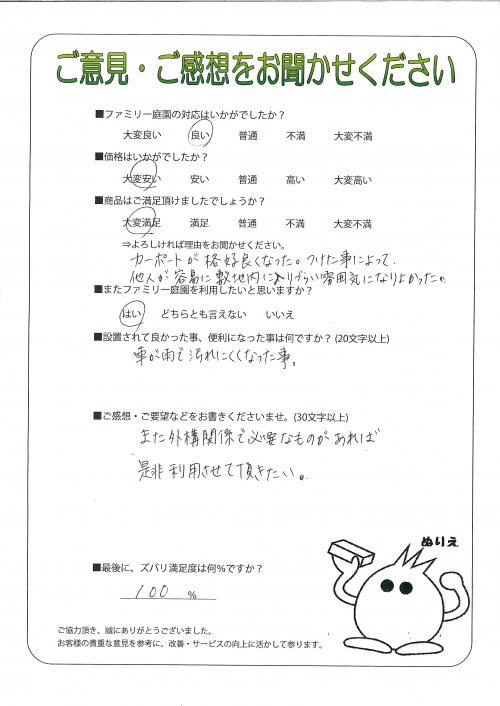 ご意見・ご感想をお聞かせください
■ファミリー庭園の対応はいかがでしたか？
大変良い 良い 普通 不満 大変不満
■価格はいかがでしたか？
大変安い 安い 普通 高い 大変高い
■商品はご満足頂けましたでしょうか？
大変満足 満足 普通 不満 大変不満
⇒よろしければ理由をお聞かせください。
カーポートが格好良くなった。つけた事によって、
他人が容易に敷地内に入りづらい雰囲気になりよかった。
■またファミリー庭園を利用したいと思いますか？
はい どちらとも言えない いいえ
■設置されて良かった事、便利になった事は何ですか？(20文字以上)
車が雨で汚れにくくなった事。
■ご感想・ご要望などをお書きくださいませ。(30文字以上)
また外構関係で必要なものがあれば
是非利用させて頂きたい。
ぬりえ
■最後に、ズバリ満足度は何％ですか？
100 ％
ご協力頂き、誠にありがとうございました。
お客様の貴重な意見を参考に、改善・サービスの向上に活かして参ります。